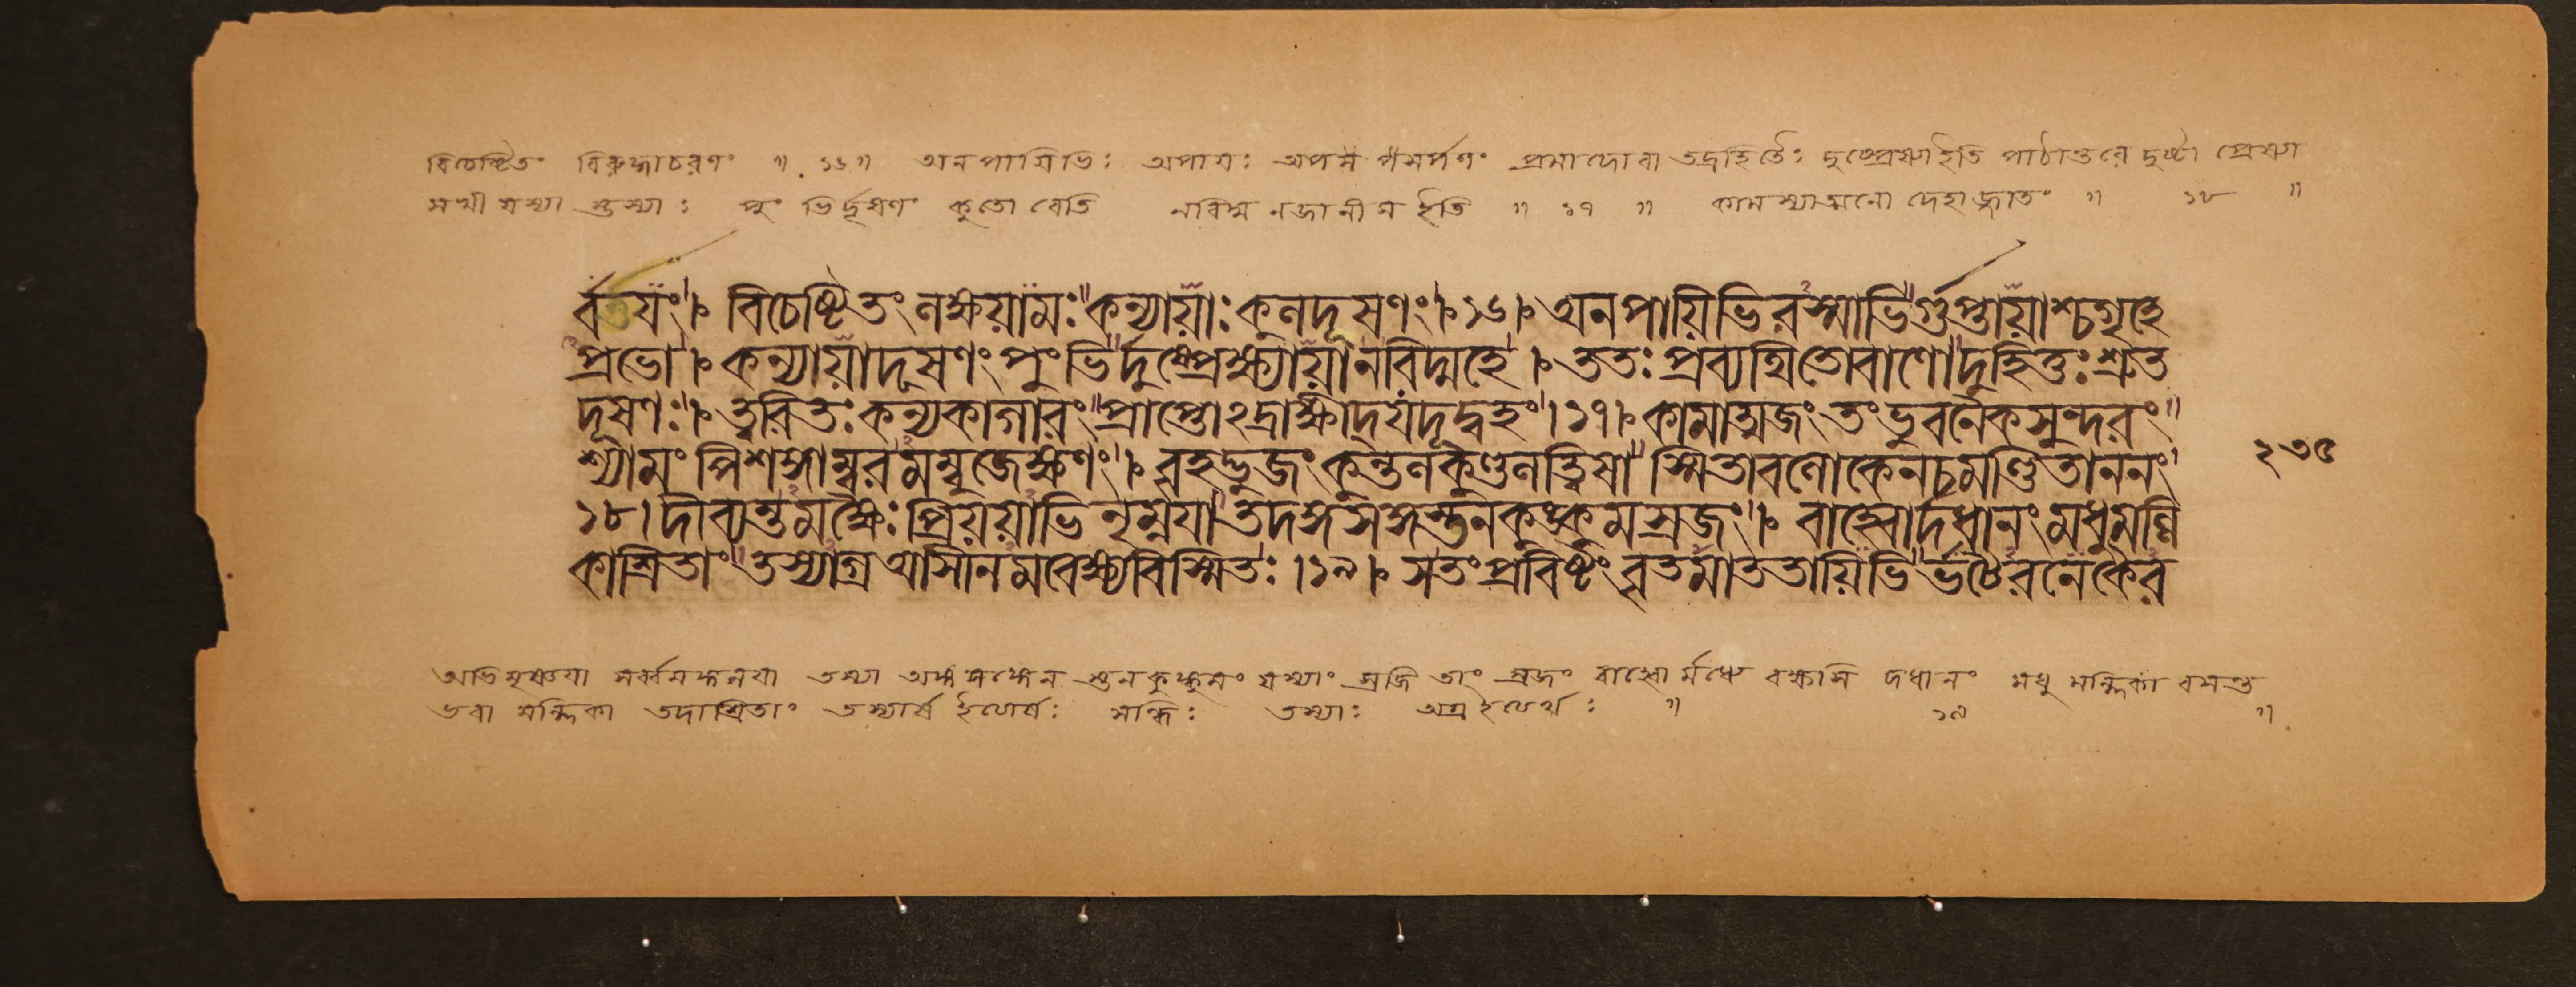 বিচেষ্টিতং বিরুদ্ধাচরণং ॥ ১৬ ॥ অনপায়িভিঃ অপায়ঃ অপসর্পণং প্রমাদোবা তদ্রহিতৈঃ দুষ্প্রেক্ষ্যাইতি পাঠান্তরে দুষ্টা প্রেক্ষ্যা
সখী যস্যা স্তস্যাঃ পুংভির্দূষণং কুতো বেতি নবিদ্ম নজানীম ইতি ॥ ১৭ ॥ কামস্যাত্মনো দেহাজ্জাতং ॥ ১৮ ॥
র্বতয়ং। বিচেষ্টিতং লক্ষয়ামঃ কন্যায়াঃ কুলদূষণং। ১৬। অনপায়িভিরস্মাভির্গুপ্তায়াশ্চগৃহে
প্রভো। কন্যায়াদূষণং পুংভির্দুষ্প্রেক্ষ্যায়ানবিদ্মহে। ততঃ প্রব্যথিতোবাণোদুহিতুঃ শ্রুত
দূষণঃ। ত্বরিতঃ কন্যকাগারং প্রাপ্তোঽদ্রাক্ষীদ্যদূদ্বহং। ১৭। কামাত্মজং তং ভুবনৈকসুন্দরং
শ্যামং পিশঙ্গাম্বরমম্বুজেক্ষণং। বৃহদ্ভুজং কুন্তলকুণ্ডলত্বিষা স্মিতাবলোকেনচমণ্ডিতাননং
১৮। দীব্যন্তমক্ষৈঃ প্রিয়য়াভিনৃম্নয়া তদঙ্গসঙ্গস্তনকুঙ্কুমস্রজং। বাহ্বোর্দধানং মধুমল্লি
কাশ্রিতাং তস্যাগ্রআসীনমবেক্ষ্যবিস্মিতঃ। ১৯। সতংপ্রবিষ্টং বৃতমাততায়িভির্ভটৈরনেকৈর
২৩৫
তয়া অঙ্গসঙ্গেন স্তনকুঙ্কুমং যস্যাং স্রজি তাং স্রজং বাহ্বোর্মধ্যে বক্ষসি দধানং মধু মল্লিকা বসন্ত
ভবা মল্লিকা তদাশ্রিতাং সন্ধিঃ তস্যাঃ অগ্রইত্যর্থঃ ॥ ১৯ ॥